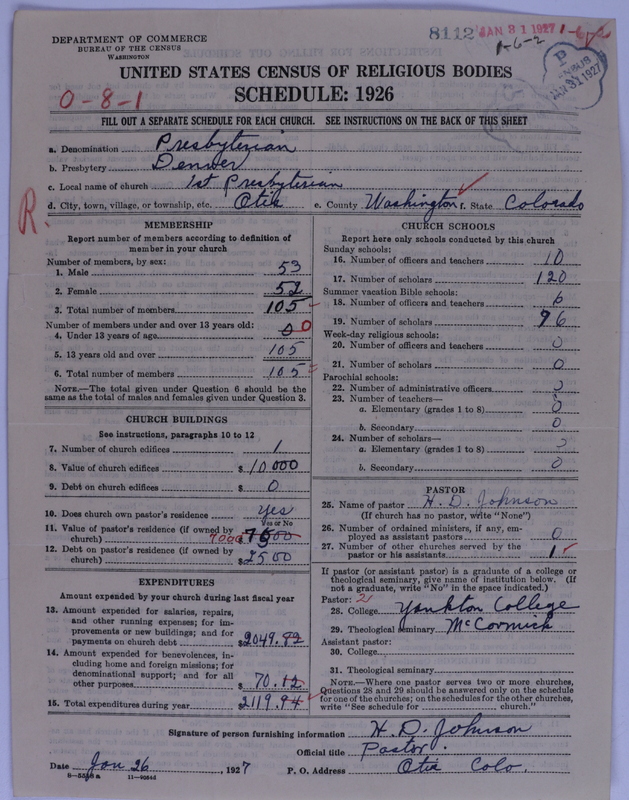 DEPARTMENT OF COMMERCE
BUREAU OF THE CENSUS
WASHINGTON
8112 JAN 31 1927 1-6-2
1-6-2
P CENSUS JAN 31 1927
UNITED STATES CENSUS OF RELIGIOUS BODIES
SCHEDULE: 1926
0-8-1
FILL OUT A SEPARATE SCHEDULE FOR EACH CHURCH. SEE INSTRUCTIONS ON THE BACK OF THIS SHEET
a. Denomination Presbyterian
b. Presbytery Denver
c. Local name of church 1st Presbyterian
d. City, town, village, or township, etc. Otis e. County Washington f. State Colorado
R.
MEMBERSHIP
Report number of members according to definition of
member in your church
Number of members, by sex:
1. Male 53
2. Female 52
3. Total number of members 105
Number of members under and over 13 years old:
4. Under 13 years of age 0 0
5. 13 years old and over 105
6. Total number of members 105
NOTE.—The total given under Question 6 should be the
same as the total of males and females given under Question 3.
CHURCH BUILDINGS
See instructions, paragraphs 10 to 12
7. Number of church edifices 1
8. Value of church edifices $10000
9. Debt on church edifices $ 0
10. Does church own pastor's residence yes
Yes or No
11. Value of pastor's residence (if owned by
church)
12. Debt on pastor's residence (if owned by
church) $2500
EXPENDITURES
Amount expended by your church during last fiscal year
13. Amount expended for salaries, repairs,
and other running expenses; for im-
provements or new buildings; and for
payments on church debt $2049.82
14. Amount expended for benevolences, in-
cluding home and foreign missions; for
denominational support; and for all
other purposes $ 70.12
15. Total expenditures during year $2119.94
CHURCH SCHOOLS
Report here only schools conducted by this church
Sunday schools:
16. Number of officers and teachers 10
17. Number of scholars 120
Summer vacation Bible schools:
18. Number of officers and teachers 6
19. Number of scholars 96
Week-day religious schools:
20. Number of officers and teachers 0
21. Number of scholars 0
Parochial schools:
22. Number of administrative officers 0
23. Number of teachers—
a. Elementary (grades 1 to 8) 0
b. Secondary 0
24. Number of scholars—
a. Elementary (grades 1 to 8) 0
b. Secondary 0
PASTOR
25. Name of pastor H. D. Johnson
(If church has no pastor, write "None")
26. Number of ordained ministers, if any, em-
ployed as assistant pastors 0
27. Number of other churches served by the
pastor or his assistants 1
If pastor (or assistant pastor) is a graduate of a college or
theological seminary, give name of institution below. (If
not a graduate, write "No" in the space indicated.)
Pastor: 2
28. College Yankton College
29. Theological seminary McCormick
Assistant pastor:
30. College
31. Theological seminary
NOTE.—Where one pastor serves two or more churches,
Questions 28 and 29 should be answered only on the schedule
for one of the churches; on the schedules for the other churches,
write "See schedule for church."
Signature of person furnishing information H. D. Johnson
Official title Pastor.
Date Jan 26, 1927 P. O. Address Otis Colo.